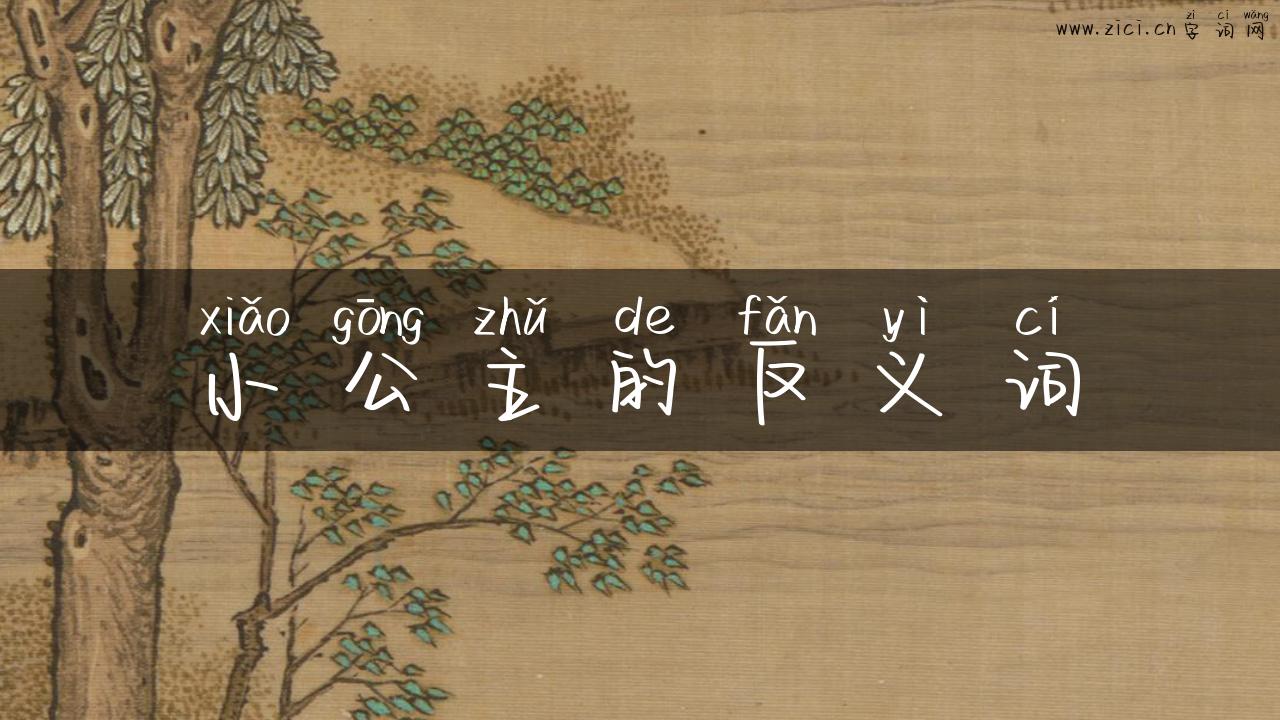 zì cí wǎng
www.zici.cn 字 词 网
xiǎo gōng zhǔ de fǎn yì cí
小 公 主 的 反 义 词